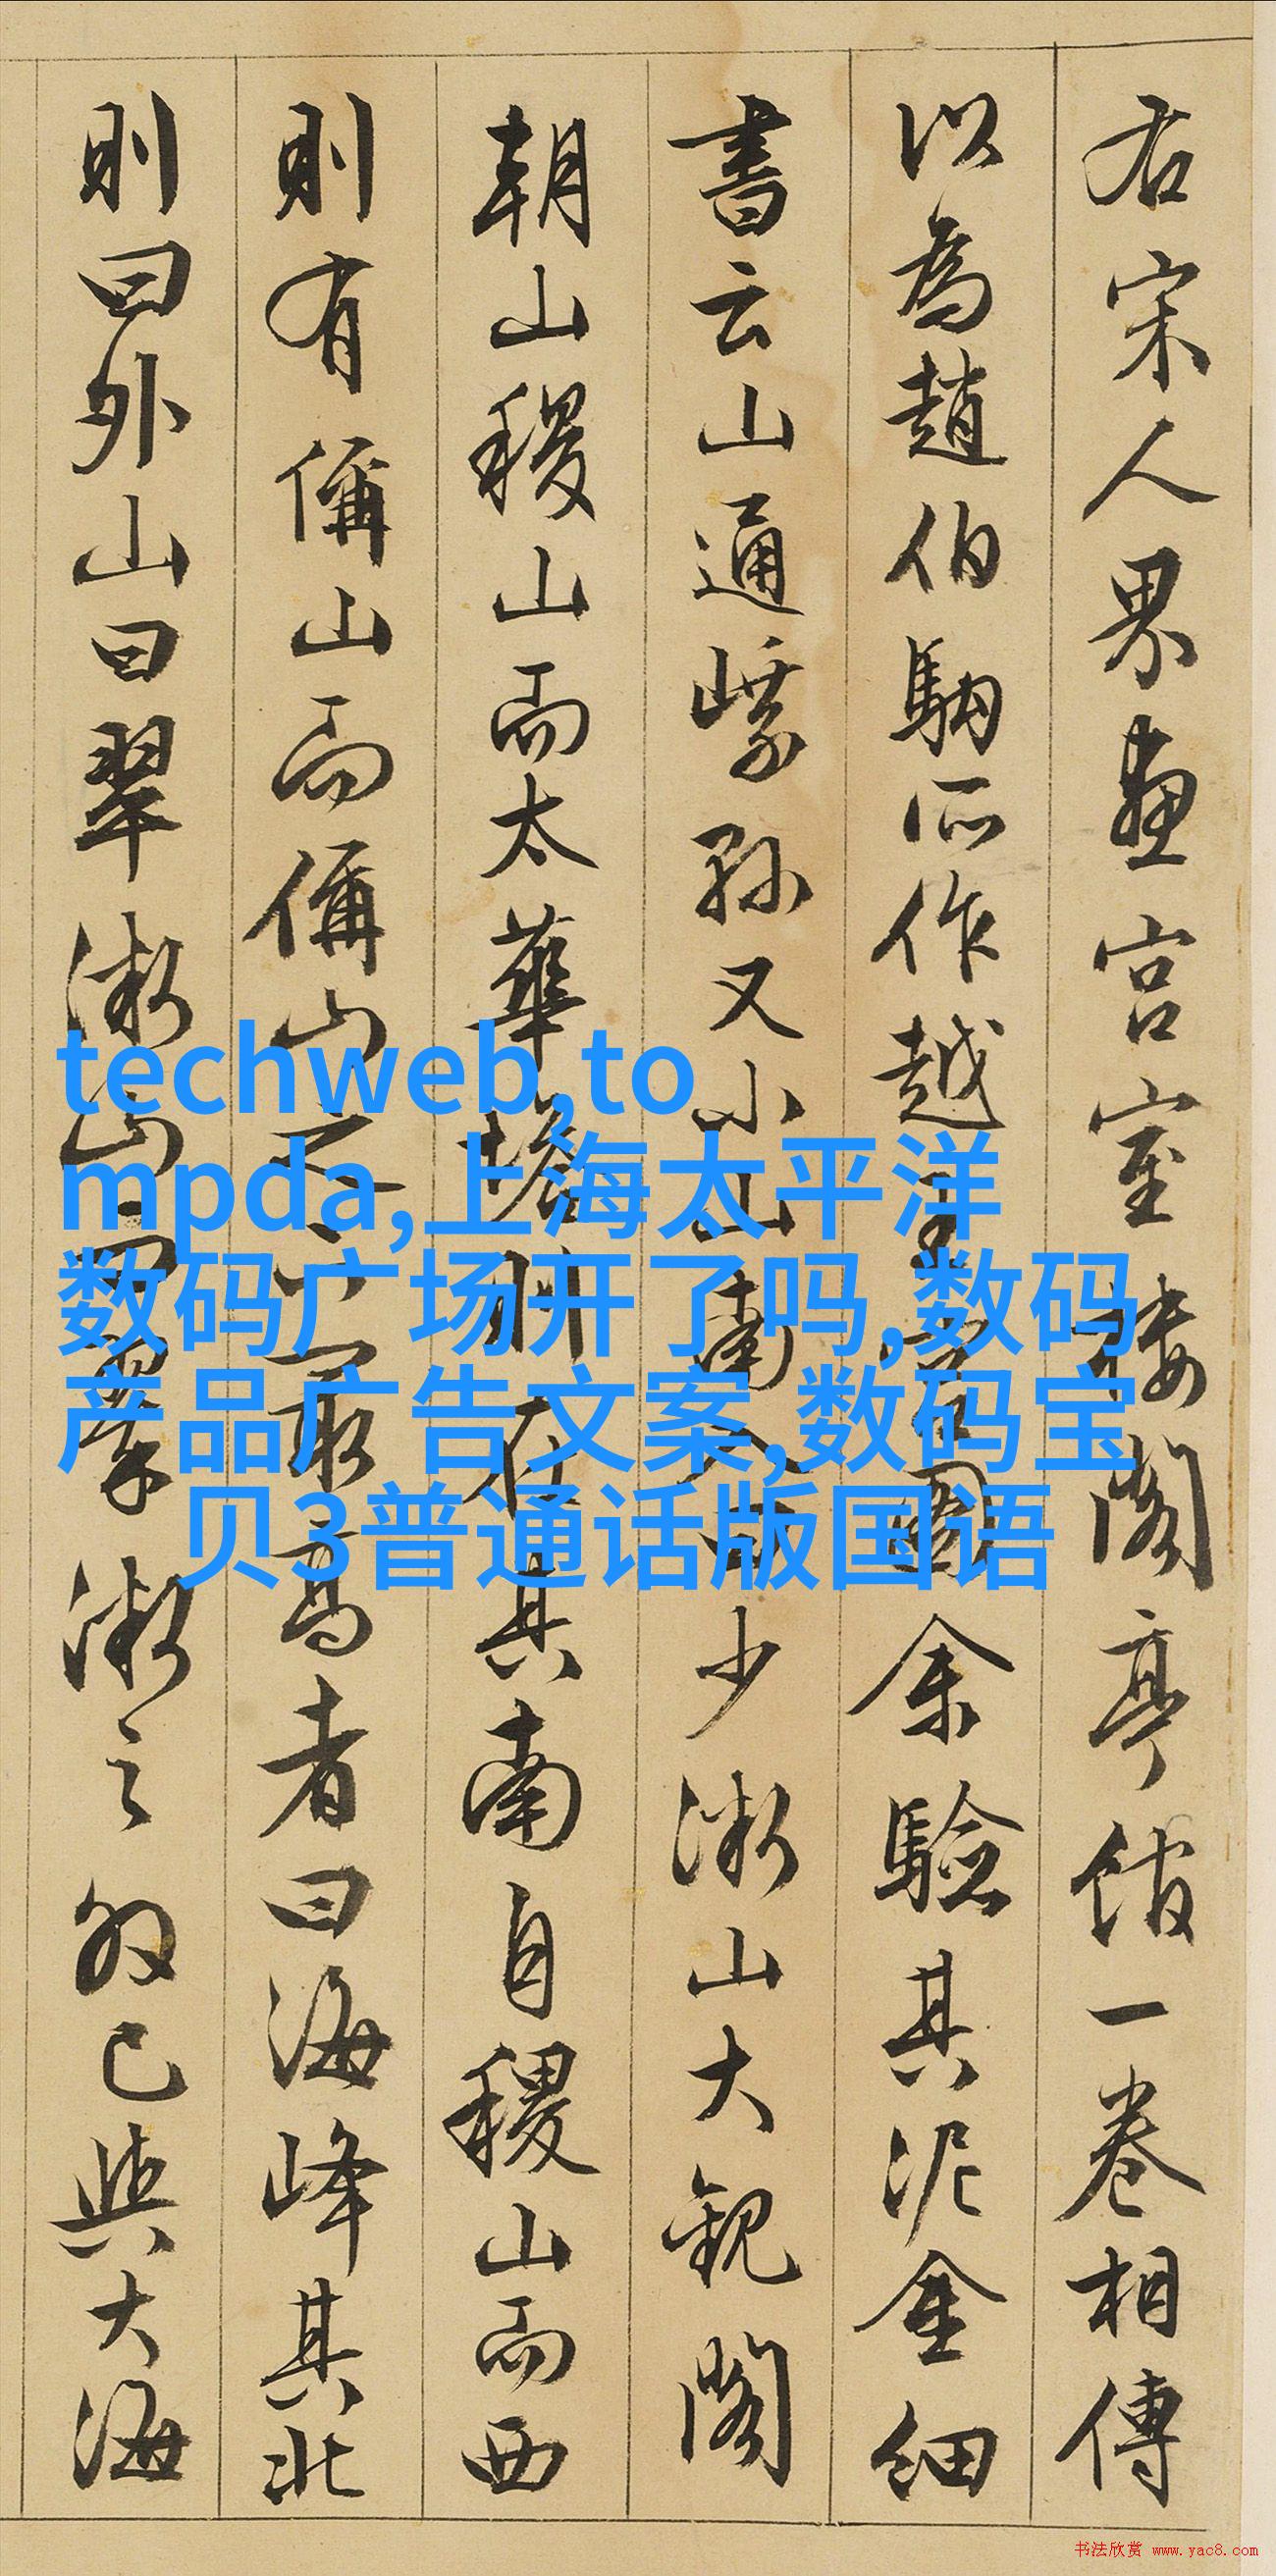 右宋人界畫宮室樓閣亭館一卷相傳
以為趙伯駒所作越王宮圖余驗其泥金細
書云山通峨孫又小山南入少澌山大觀閣
朝山稷山而太華塔則在其南自稷山而西
則有偁山而偁山之最高者曰海峰其北
則曰外山曰翠澌山曰翠澌之外已與大海
techweb,to
mpda,上海太平洋
数码广场开了吗,数码
产品广告文案,数码宝
贝3普通话版国语
书法欣赏 www.yac8.com